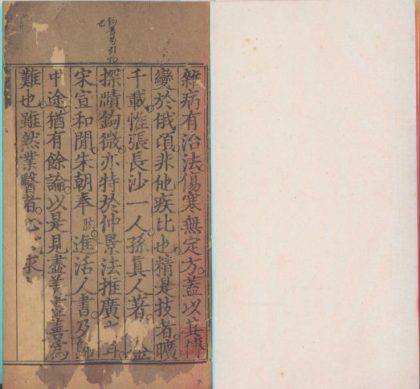 雜病有治法傷寒無定方蓋以其機
變於俄頃非他疾比也精是技者曠
千載惟張長沙一人孫眞人著 金
探賾鉤微亦特於仲景法推廣之耳
宋宣和間朱朝奉肱進活人書乃
中途猶有餘論以是見盡善盡美爲
難也雖然業醫者心 求